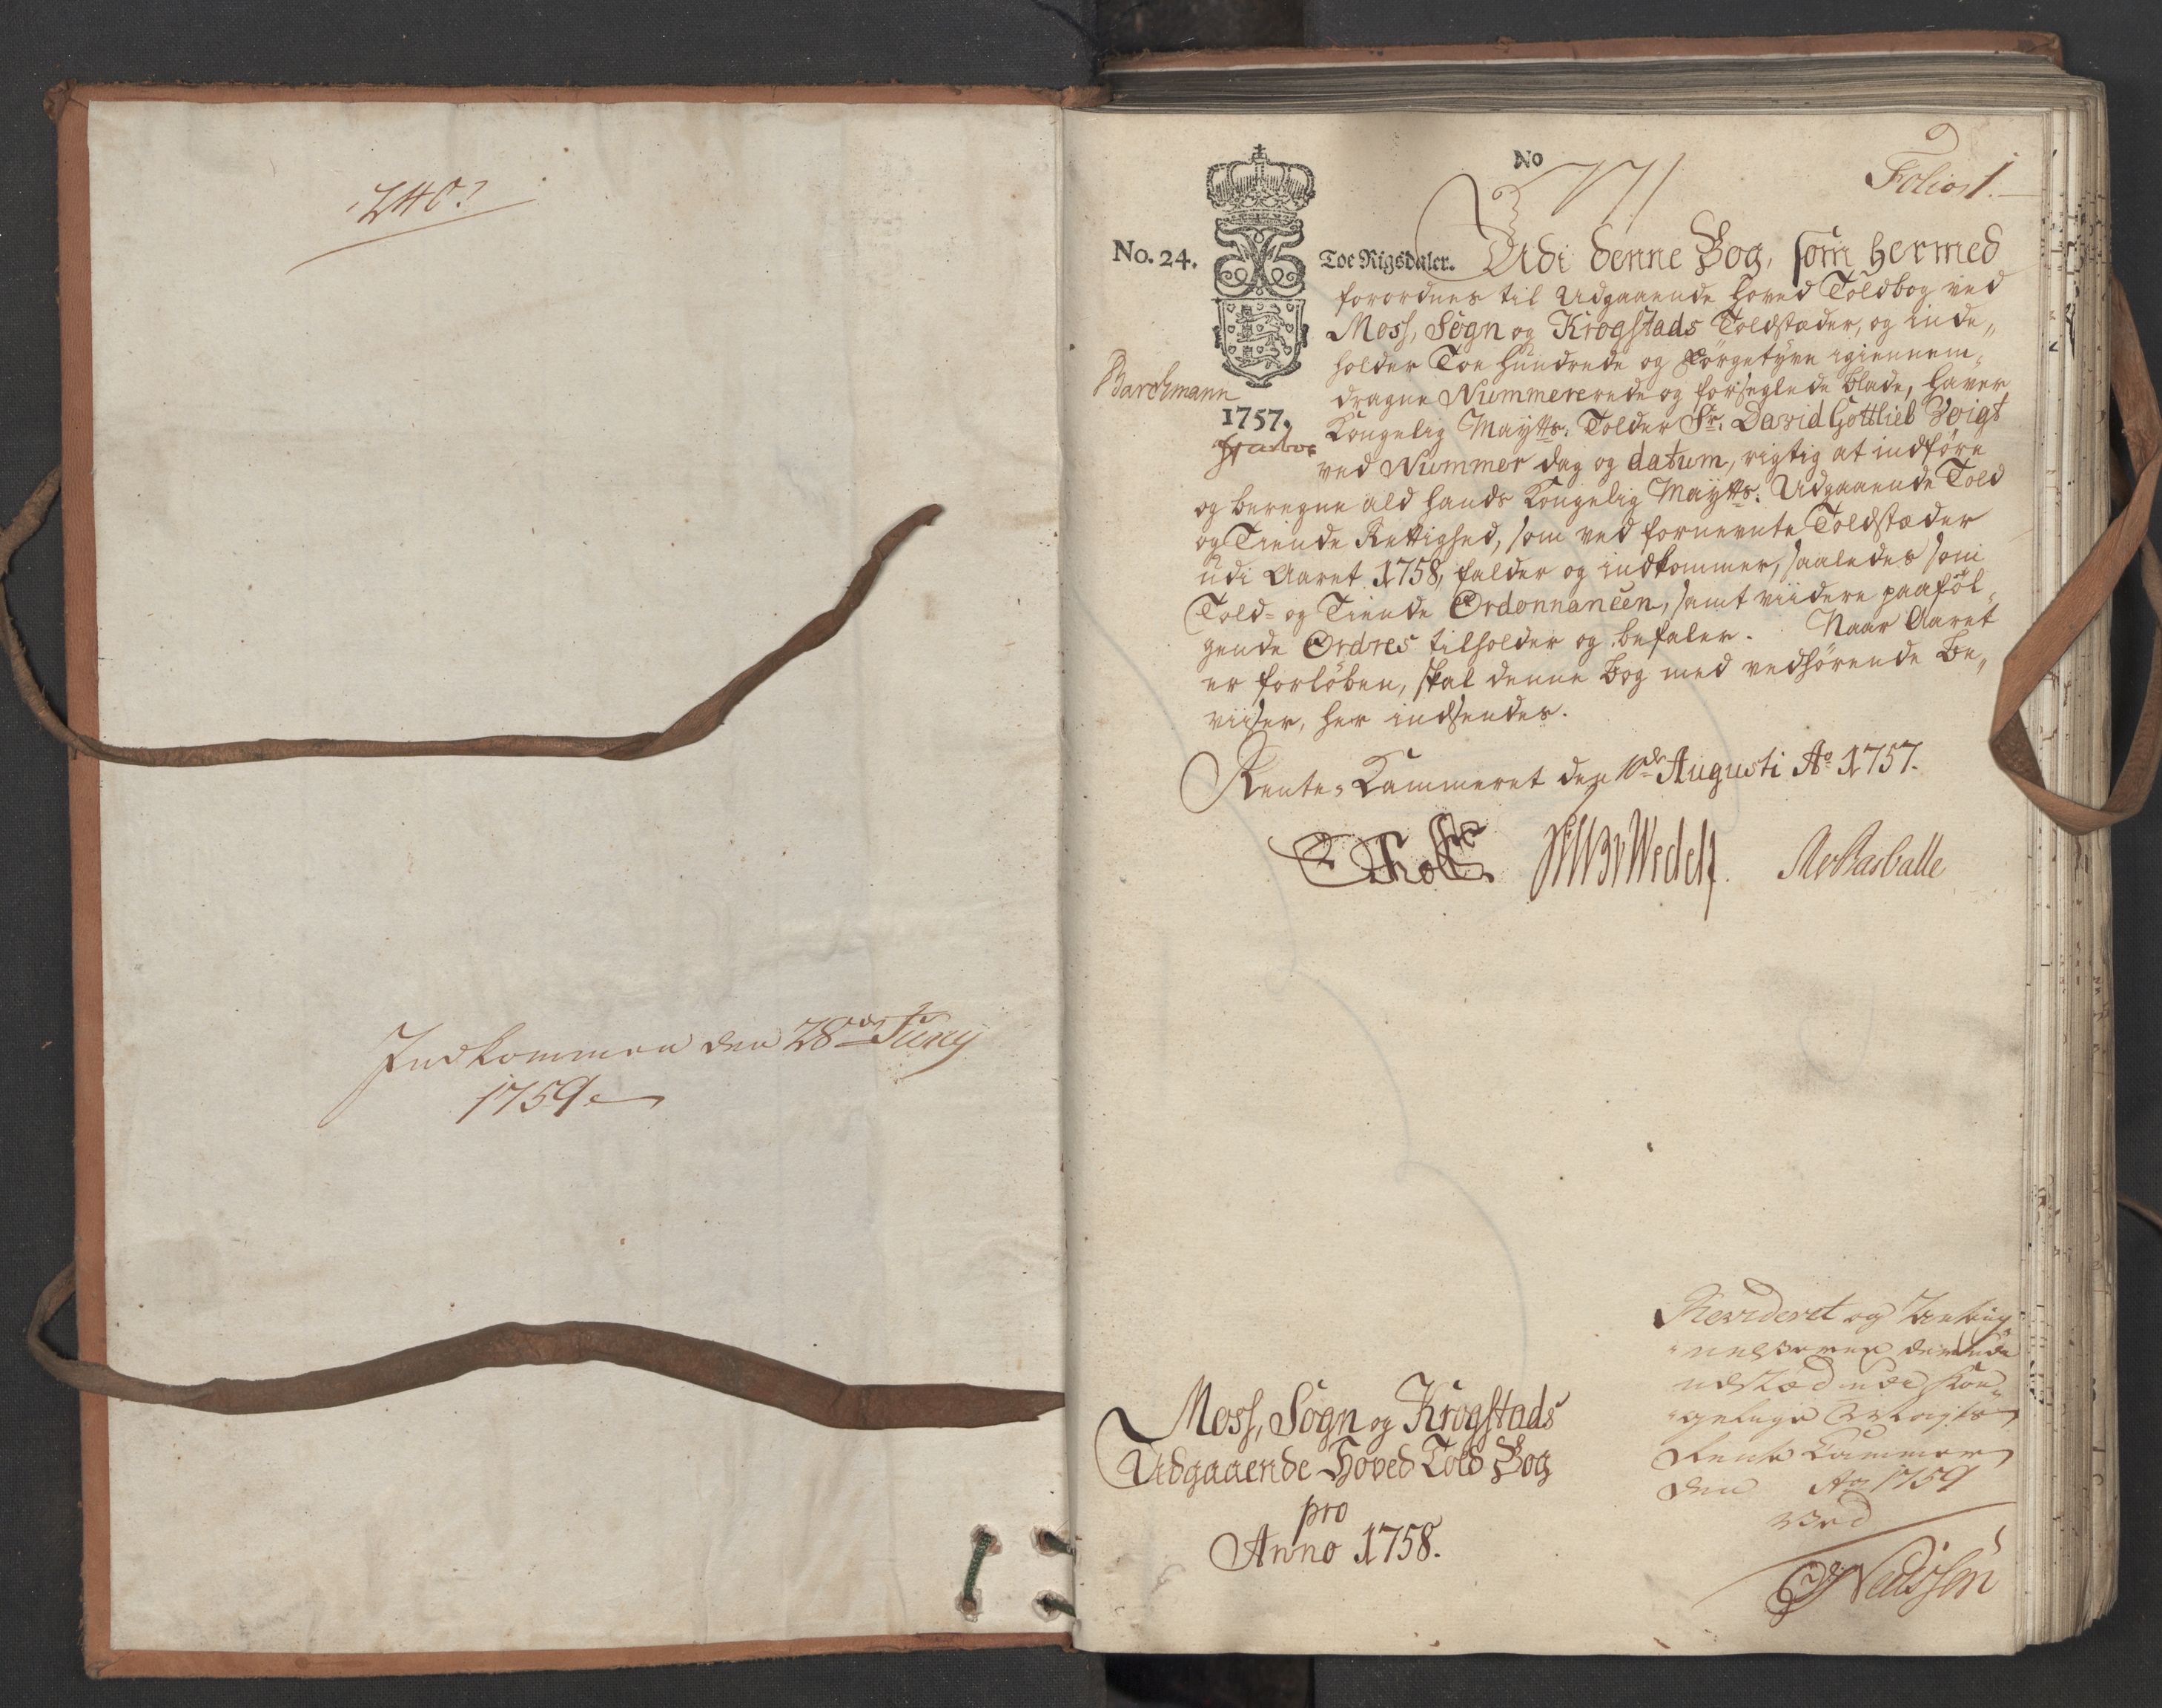 240
Indkommen den 28de Juny
1759.
No
Folio 1.
No. 24.
Toe Rigsdaler.
Barchmann
1757.
Udi denne Bog, som hermed
forordnes til Udgaaende Hoved Toldbog ved
Moss, Sogn og Krogstads Toldstæder, og inde„
holder Toe Hundrede og Förgetyve igiennem„
dragne Nummererede og forseglede blade, haver
Kongelig Maytts: Tolder Sr. David Gottlieb Voigt
ved Nummer dag og datum, rigtig at indföre
og beregne ald hands Kongelig Maytts: Udgaaende Told
og Tiende Rettighed, som ved fornevnte Toldstæder
udi Aaret 1758, falder og indkommer, saaledes som
Told- og Tiende Ordonnancen, samt viidere paaföl„
gende Ordres tilholder og befaler. Naar Aaret
er forlöben, skal denne Bog med vedhörende Be„
viiser, her indsendes.
Rente-Kammeret den 10de Augusti Ao 1757.
Holst.
Wedell.
Moss, Sogn og Krogstads
Udgaaende Hoved Told Bog
pro
Anno 1758.
Revideret og
udstæd udi Kon„
gelige Mayts
Rente Cammer
den Ao 1759
Ved
Neilssen